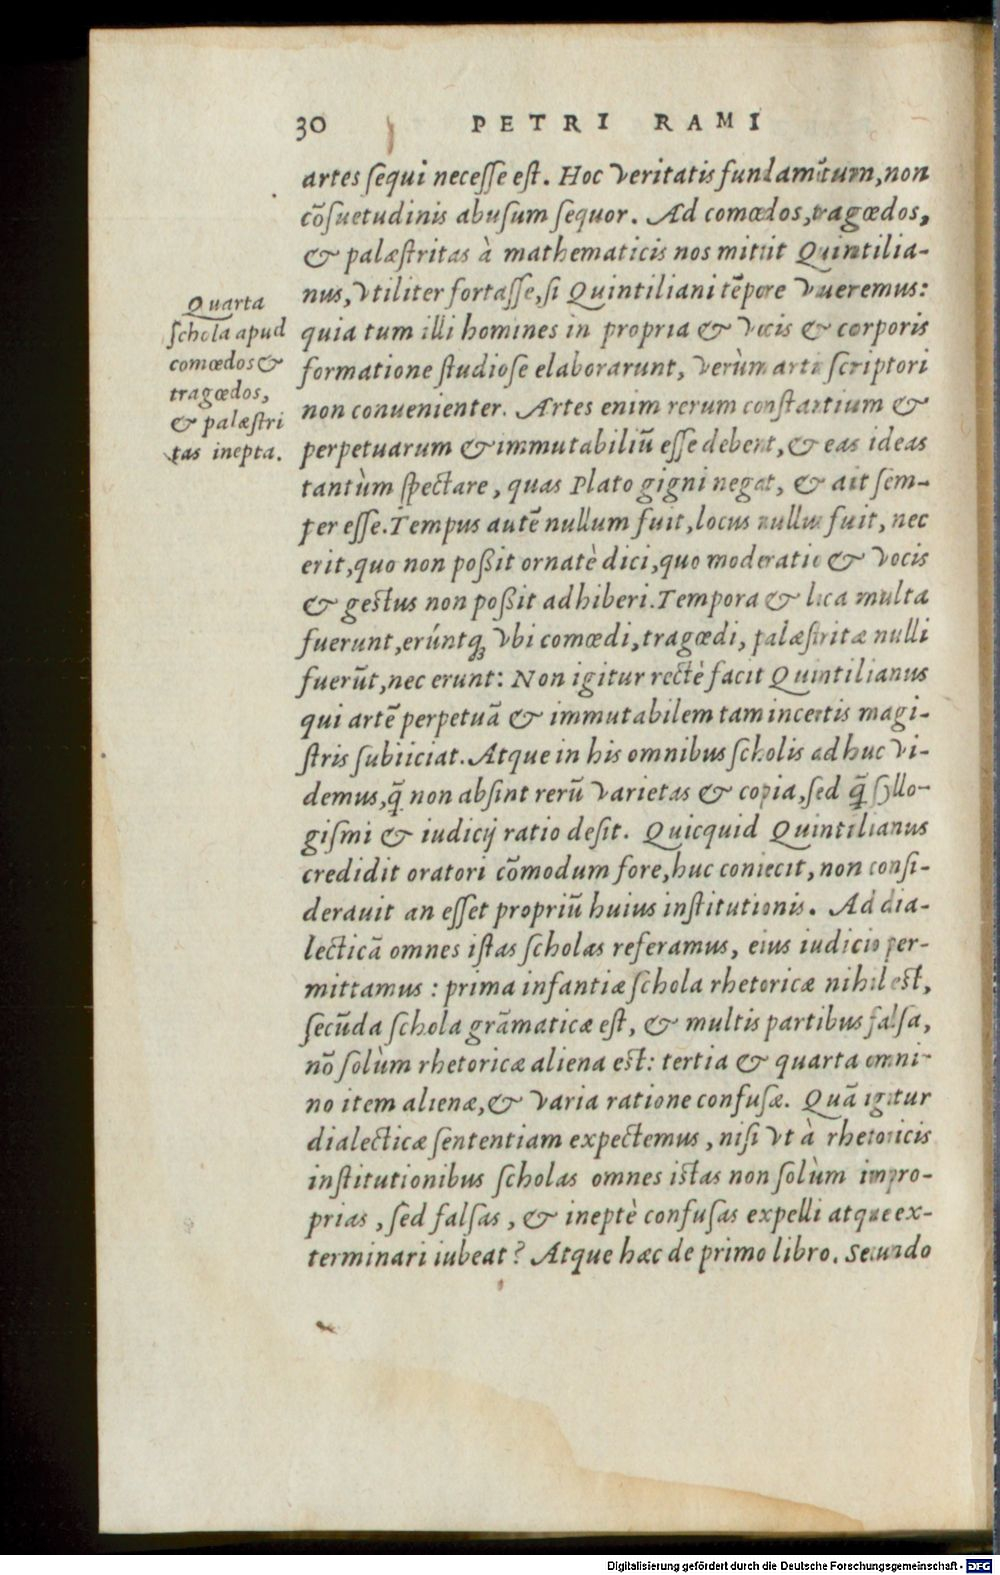 30 PETRI RAMI
artes ſequi neceſſe eſt. Hoc veritatis fundamẽtum, non
cõſuetudinis abuſum ſequor. Ad comœdos, tragœdos,
& palæſtritas à mathematicis nos mittit Quintilia-
nus, vtiliter fortaſſe, ſi Quintiliani tẽpore viueremus:
quia tum illi homines in propria & vocis & corporis
formatione ſtudioſe elaborarunt, verùm arti ſcriptori
non conuenienter. Artes enim rerum conſtantium &
perpetuarum & immutabiliũ eſſe debent, & eas ideas
tantùm ſpectare, quas Plato gigni negat, & ait ſem-
per eſſe. Tempus autẽ nullum fuit, locus nullus fuit, nec
erit, quo non poßit ornatè dici, quo moderatio & vocis
& geſtus non poßit adhiberi. Tempora & loca multa
fuerunt, erúntq; vbi comœdi, tragœdi, palæſtritæ nulli
fuerũt, nec erunt: Non igitur rectè facit Quintilianus
qui artẽ perpetuã & immutabilem tam incertis magi-
ſtris ſubiiciat. Atque in his omnibus ſcholis adhuc vi-
demus, q̃ non abſint rerũ varietas & copia, ſed q̃ ſyllo-
giſmi & iudicij ratio deſit. Quicquid Quintilianus
credidit oratori cõmodum fore, huc coniecit, non conſi-
derauit an eſſet propriũ huius inſtitutionis. Ad dia-
lecticã omnes iſtas ſcholas referamus, eius iudicio per-
mittamus: prima infantiæ ſchola rhetoricæ nihil eſt,
ſecũda ſchola grãmaticæ eſt, & multis partibus falſa,
nõ ſolùm rhetoricæ aliena eſt: tertia & quarta omni-
no item alienæ, & varia ratione confuſæ. Quã igitur
dialecticæ ſententiam expectemus, niſi vt à rhetoricis
inſtitutionibus ſcholas omnes iſtas non ſolùm impro-
prias, ſed falſas, & ineptè confuſas expelli atque ex-
terminari iubeat? Atque hæc de primo libro. Secundo
Quarta
ſchola apud
comœdos &
tragœdos,
& palæſtri
tas inepta.
Digitalisierung gefördert durch die Deutsche Forschungsgemeinschaft - DFG